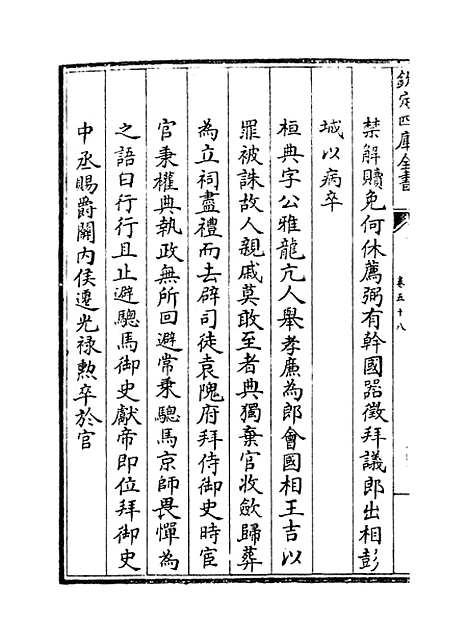 欽定四庫全書
卷五十八
禁解贖免何休薦弼有幹國器徵拜議郎出相彭
城以病卒
桓典字公雅龍亢人舉孝廉為郎會國相王吉以
罪被誅故人親戚莫敢至者典獨棄官收斂歸葬
為立祠盡禮而去辟司徒袁隗府拜侍御史時宦
官秉權典執政無所回避常乘驄馬京師畏憚為
之語曰行行且止避驄馬御史獻帝即位拜御史
中丞賜爵關內侯遷光祿勲卒於官